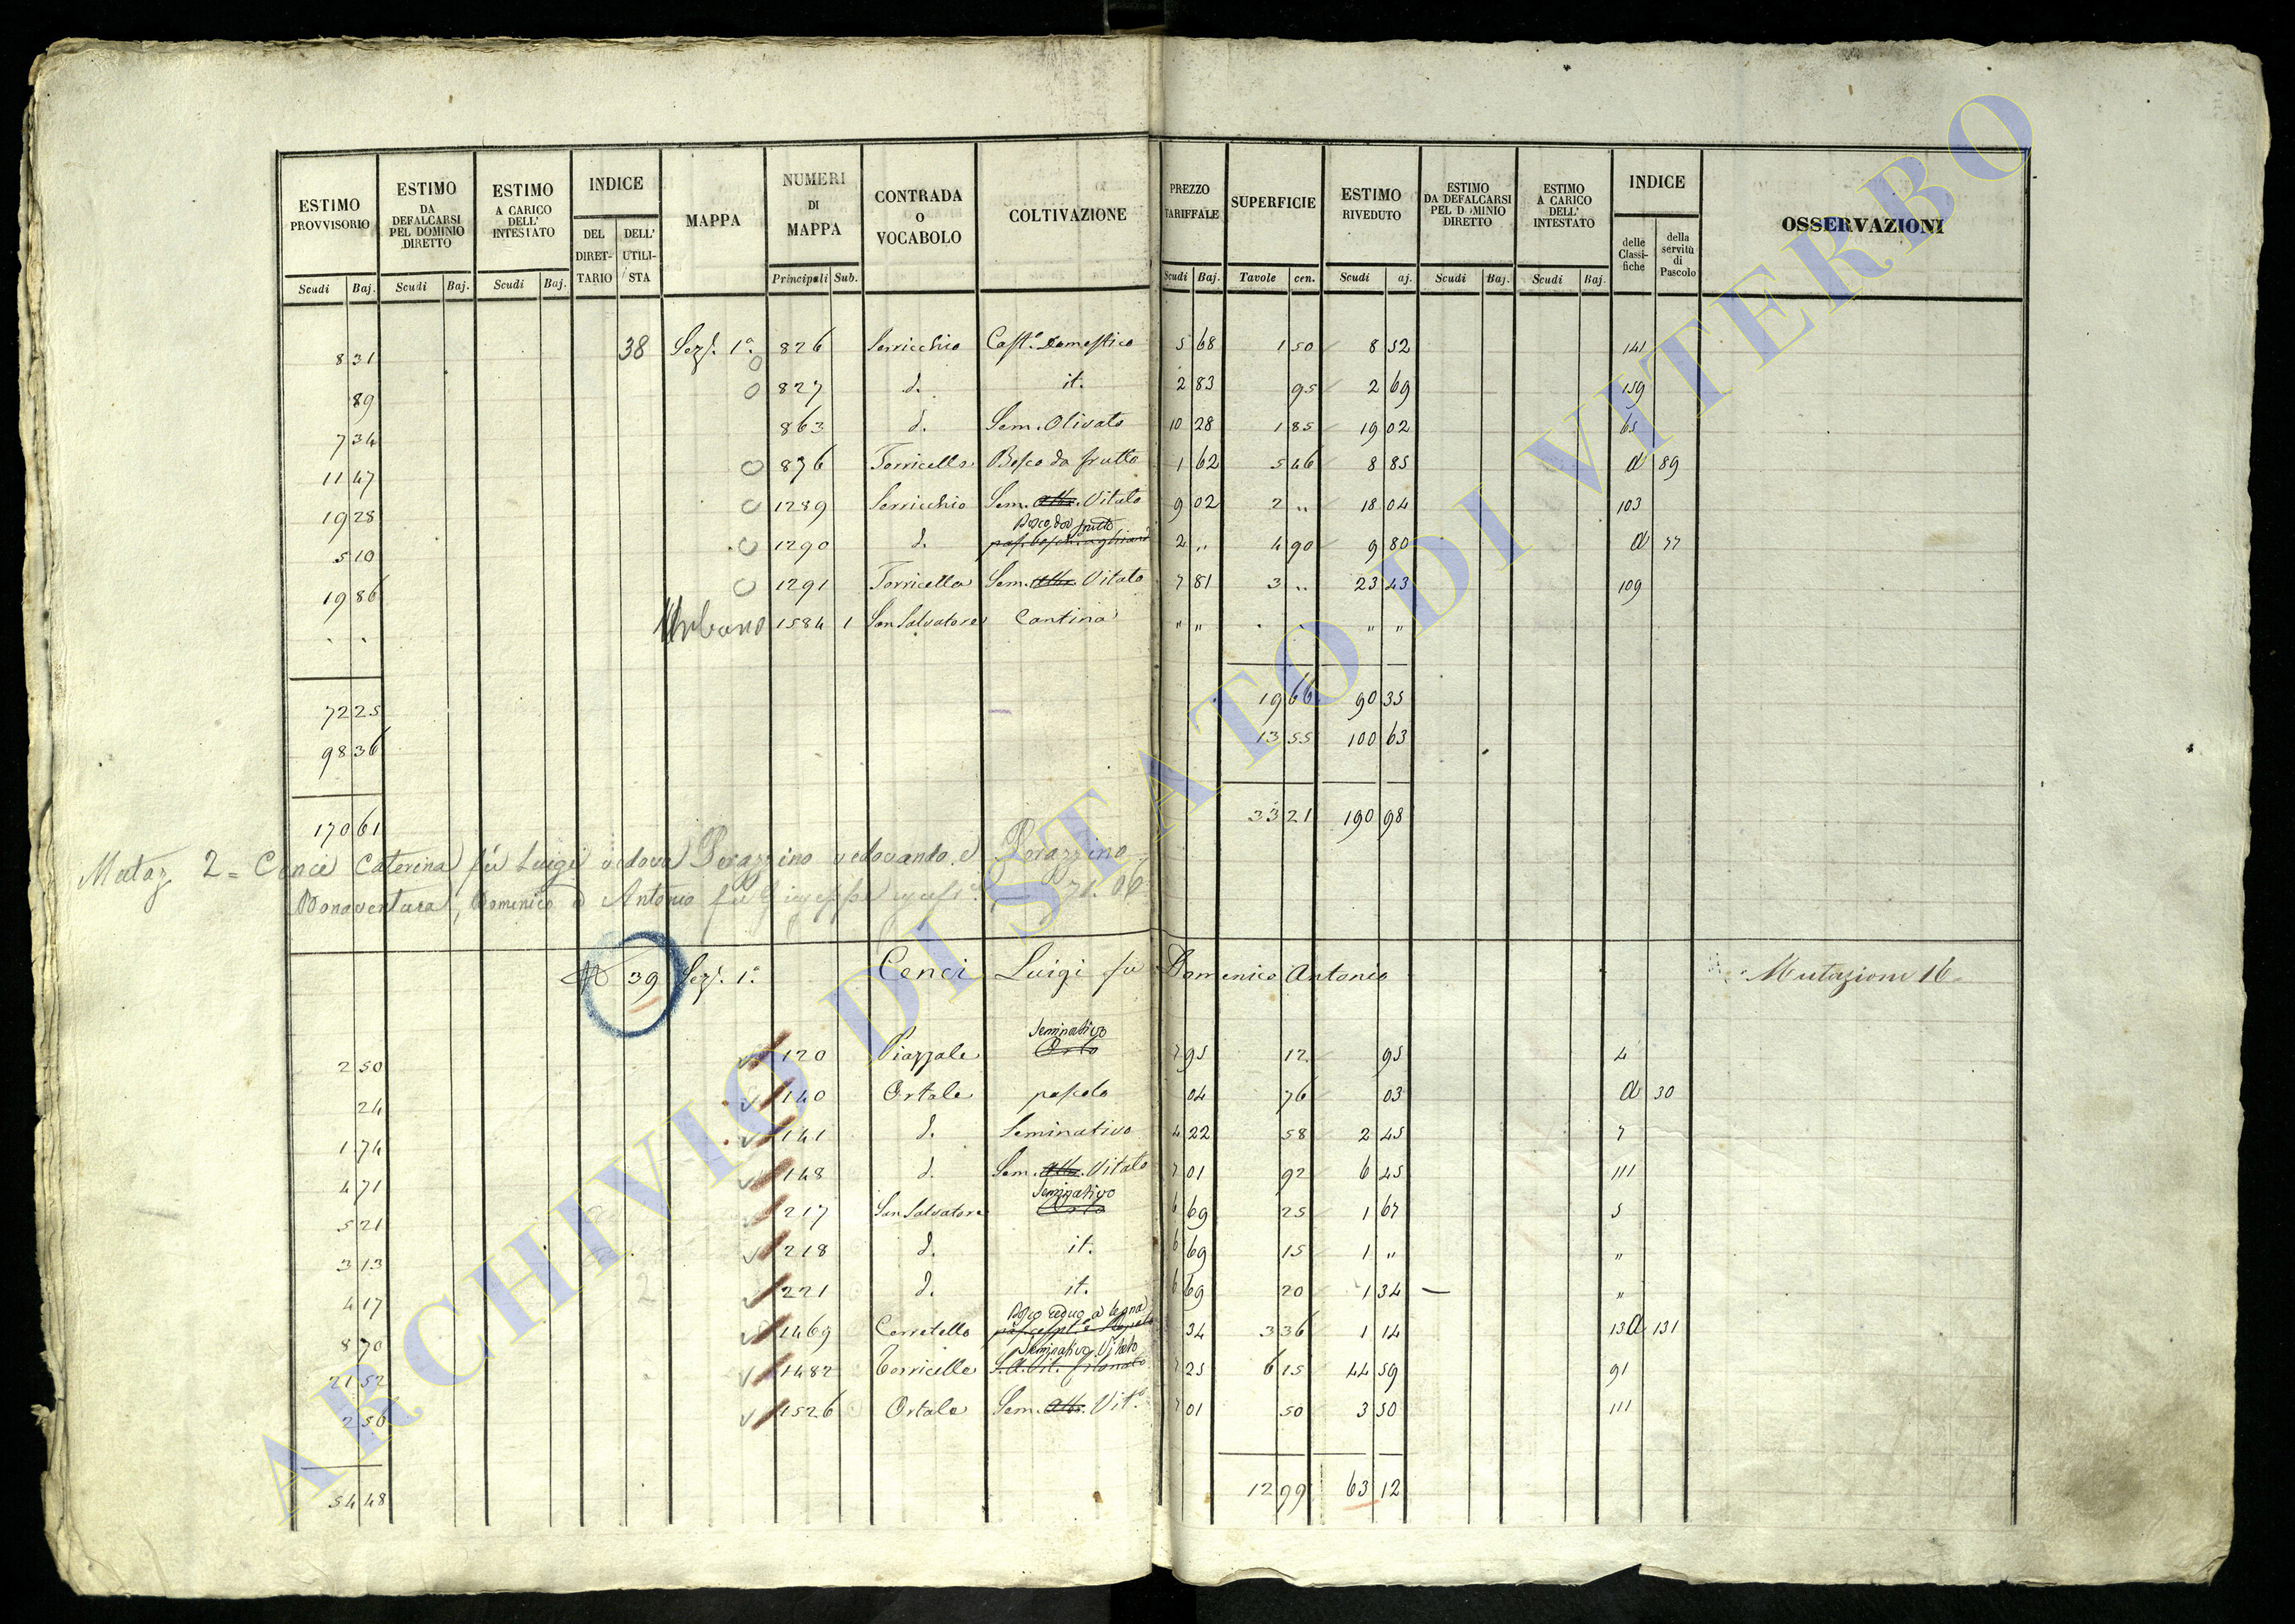 ESTIMO PROVVISORIO ESTIMO DA DEFALCARSI PEL DOMINIO DIRETTO ESTIMO A CARICO DELL' INTESTATO INDICE DEL DIRETTARIO DELL' UTILISTA MAPPA NUMERI DI MAPPA CONTRADA O VOCABOLO COLTIVAZIONE PREZZO TARIFFALE SUPERFICIE ESTIMO RIVEDUTO ESTIMO DA DEFALCARSI PEL DOMINIO DIRETTO ESTIMO A CARICO DELL' INTESTATO INDICE delle Classifiche della servitù di Pascolo OSSERVAZIONI
Scudi Baj. Scudi Baj. Scudi Baj. Principali Sub. Scudi Baj. Tavole cen. Scudi aj. Scudi Baj. Scudi Baj.
8 31 38 Sez. 1a. 826 Serricchio Cast. Domestico 5 68 1 50 8 52 141
89 827 d. it. 2 83 95 2 69 159
7 34 863 d. Sem. Olivato 10 28 1 85 19 02 65
11 47 876 Torricella Bosco da frutto 1 62 5 46 8 85 a 89
19 28 1289 Serricchio Sem. alb. Vitato 9 02 2 " 18 04 103
Bosco da frutto
5 10 1290 d. 2 " 4 90 9 80 a 77
19 86 1291 Torricella Sem. alb. Vitato 7 81 3 " 23 43 109
Urbano 1584 1 San Salvatore Cantina " " " "
72 25 19 66 90 35
98 36 13 55 100 63
170 61 33 21 190 98
Mutaz 2 = Cenci Caterina fu Luigi vedova Perazzino vedovando e Perazzino
Bonaventura, Domenico d Antonio fu Giuseppe 71.06
39 Sez. 1a. Cenci Luigi fu Domenico Antonio Mutazioni 16
Seminativo
2 50 120 Piazzale Orto 7 95 12 95 4
24 140 Ortale pascolo 04 76 03 a 30
1 74 141 d. Seminativo 4 22 58 2 45 7
4 71 148 d. Sem. alb. Vitato 7 01 92 6 45 111
Seminativo
5 21 217 San Salvatore Orto 6 69 25 1 67 5
3 13 218 d. it. 6 69 15 1 " "
4 17 221 d. it. 6 69 20 1 34 "
Bosco ceduo a legna
8 70 1469 Cerretello 34 3 36 1 14 13 a 131
Seminativo Vitato
21 52 1482 Torricella 7 25 6 15 44 59 91
2 56 1526 Ortale Sem. alb. Vit.o 7 01 50 3 50 111
54 48 12 99 63 12
ARCHIVIO DI STATO DI VITERBO